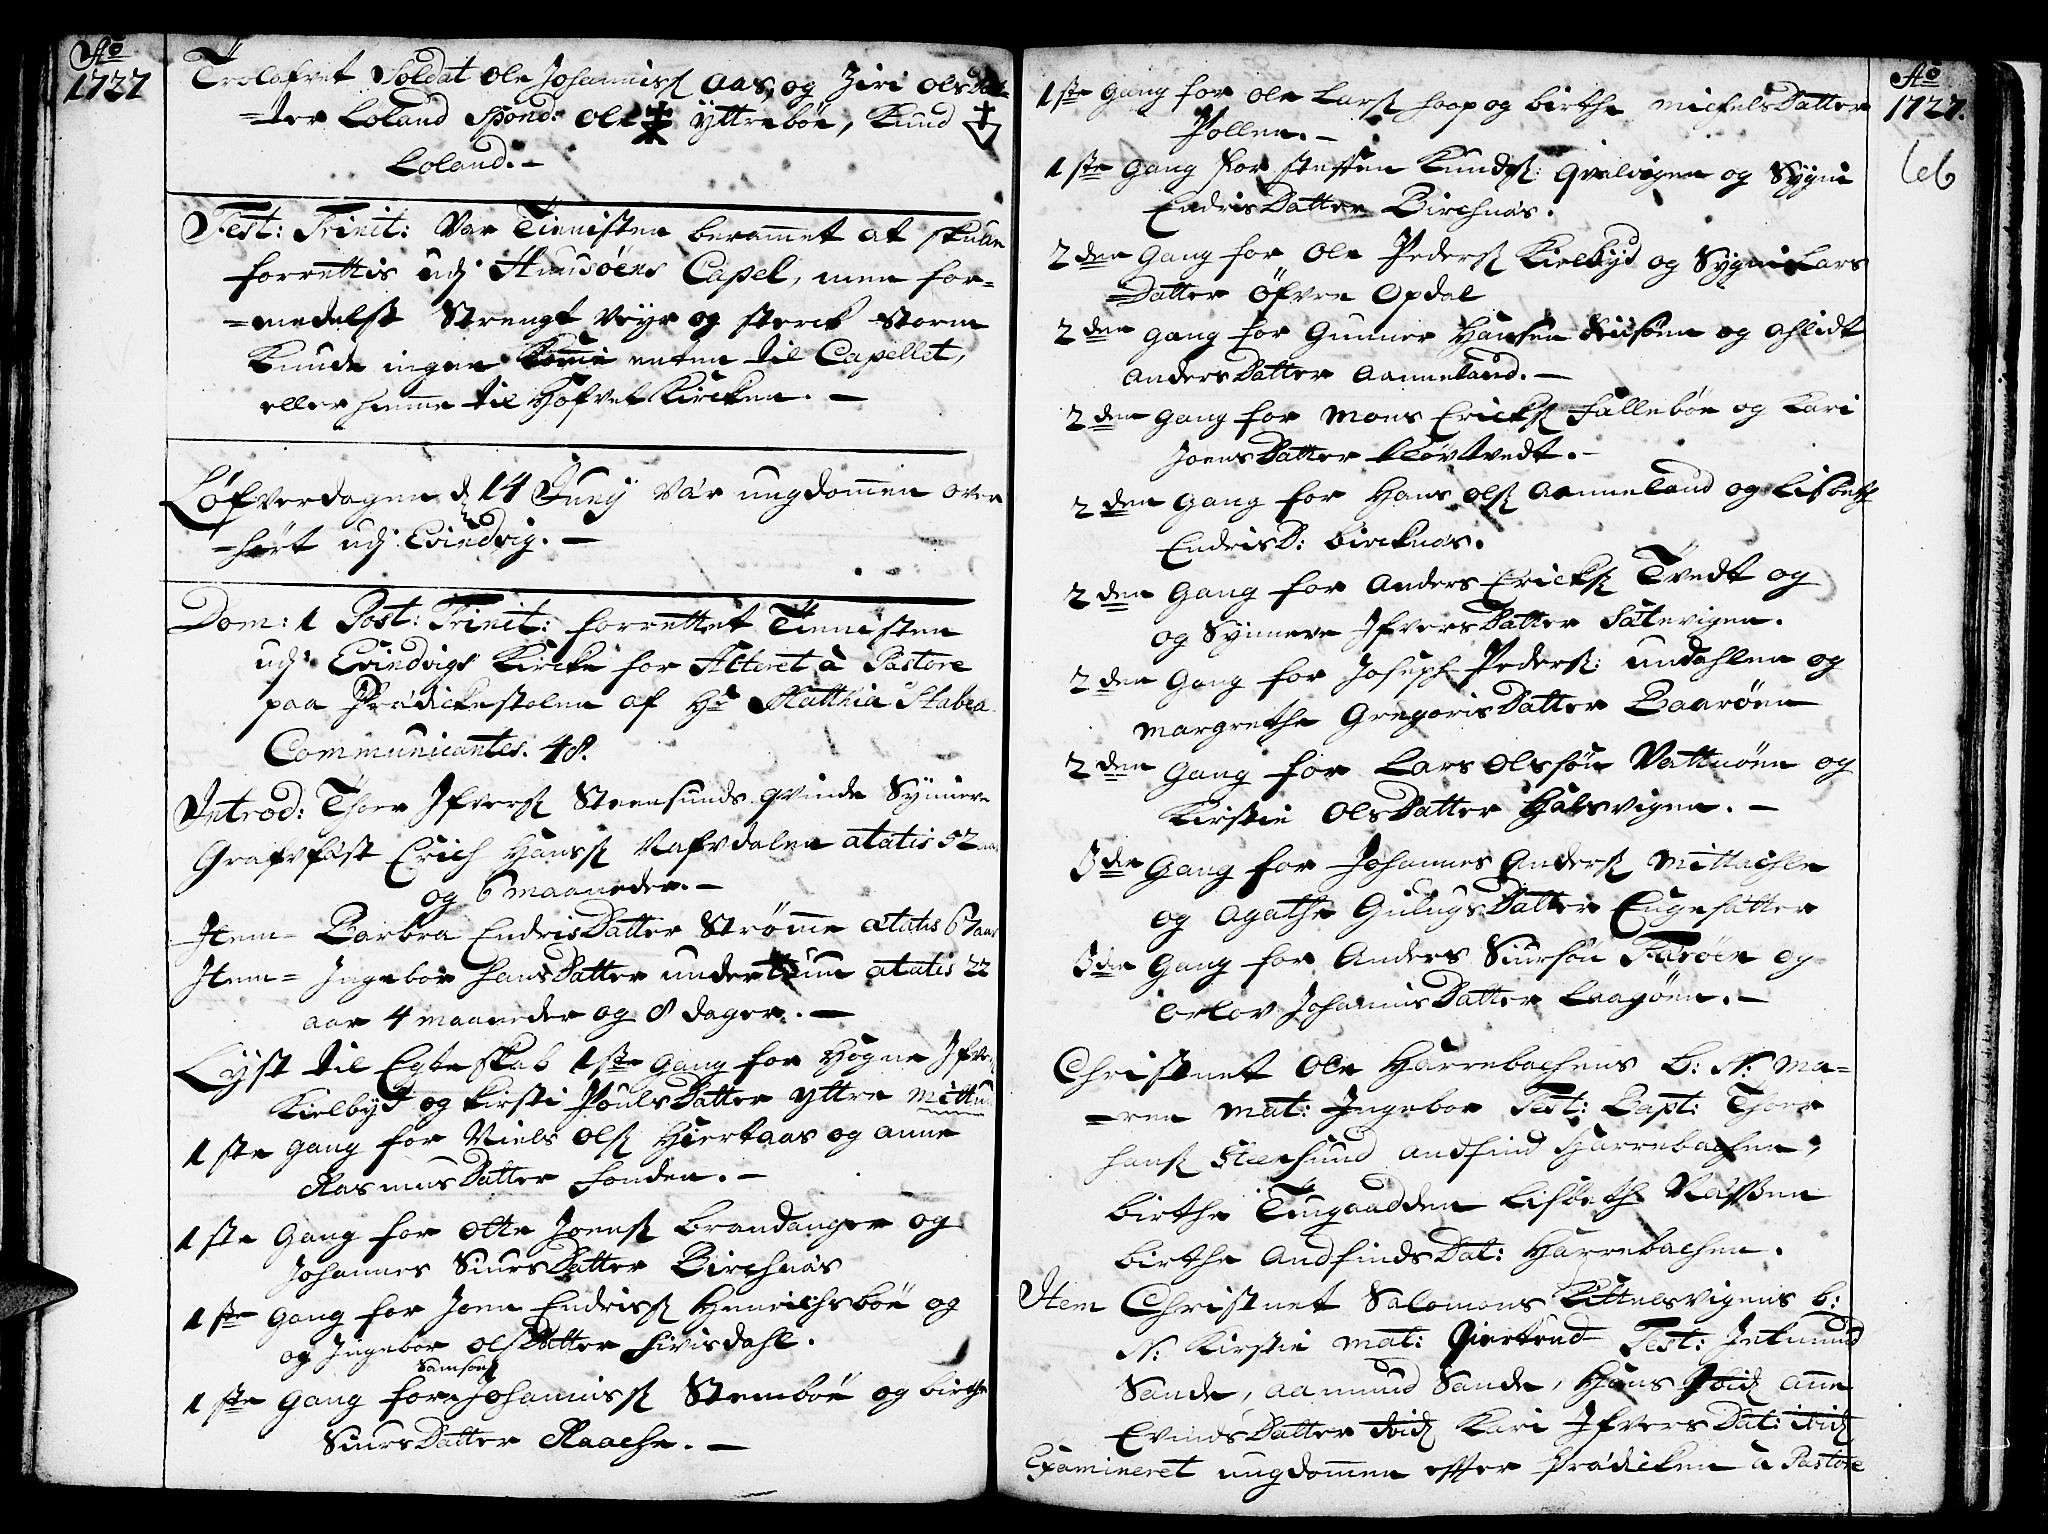 Ao
1727
Trolofvet Soldat Ole Johanniss Aas, og Ziri Ols Dat=
=ter Loland Spond: Ole Yttrebøe, Knud
Loland.-
Fest: Trinit: Var Tienisten berammet at skulle
forrettis udj Huusøens Capel, men for=
=medelst Strengt Veyr og sterck Storm
Kunde ingen Komme enten til Capellet,
eller hemme til Hofvet Kircken. -
Løfverdagen d. 14 Junij Var ungdommen over
=hørt udj Evindvig. -
Dom: 1 Post: Trinit: forrettet Tienisten
udj Evindvigs Kircke for Alteret à Pastore
paa Prædickestolen af Hr Matthia Stabea
Communicantes. 48.
Introd: Thoer Ifvers Steensunds qvinde Synneve
Grafvfæst Erich Hanss Nafvdalen ætatis 52 aar
og 6 maaneder. -
Item= Barbra Endris Datter Strømme ætatis 67 aar
Item= Ingebor Hans Datter undertuun ætatis 22
aar 4 maaneder og 8 dager. -
Lyst til Egteskab 1ste gang for Hogne Ifvers
Kielbyd og Kirsti Pouls Datter Yttre Mittun
1ste gang for Niels Ols Hiertaas og Anne
Rasmus Datter Fonden. -
1ste Gang for Otte Joens Brandanger og
Johannes Siurs Datter Birchnæs
1ste Gang for Joen Endriss Henrichsboe og
og Ingebor Ols Datter Hivisdahl.
Samson
1ste Gang for Johanniss Stenboe og Birthe
Siurs Datter Raache. -
Ao
1727.
66
1ste Gang for Ole Lars Hoop og Birthe Michels Datter
Pollen. -
1ste Gang for Steffen Knuds: Qvalvigen og Sygni
Endris Datter Birchnæs.
2den Gang for Ole Peders Kielbyd og Sygni Lars
=Datter Öfvre Opdal
2den Gang for Gunner Hansen og Ahlidt
Anders Datter Aanneland. -
2den Gang for Mons Ericks Fallebøe og Kari
Joens Datter Kløvtvedt. -
2den Gang for Hans Ols Aanneland og Lisbeth
Endris D: Bircknæs.
2den Gang for Anders Ericks Tvedt og
og Synneve Ifvers Datter Sætevigen.
2den Gang for Joseph Peders: undahlen og
Margrethe Gregoris Datter Baarøen
2den Gang for Lars Olssøn Vattnöen og
Kirstie Ols Datter Halsvigen. -
3die Gang for Johannes Anders Mittachle
og Agathe Gulugs Datter Eugesætter
3die Gang for Anders Siursøn Færöen og
Orlov Johannis Datter Laagöen. -
Christnet Ole Harrebachens B: N: Ma=
=ren Mat: Ingebor Test: Bapt: Thoer
Hans Steensund Andfind Harrebachen,
Birthe Tungaadden Lisbeth Nassen
Birthe Andfinds Dat: Harrebachen.
Item Christnet Salomons Kittelsvigens B:
N: Kirstie Mat: Giertrud Test: Intmund
Sande, Aamund Sande, Hans Ibid, Anne
Evinds Datter ibid, Kari Ifvers Dat: ibid,
Examineret ungdommen efter Prædicken à Pastore